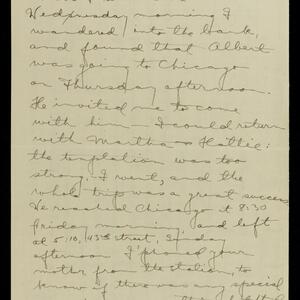 Wednesday morning I
wandered into the bank,
and found that Albert
was going to Chicago
on Thursday afternoon.
He invited me to come
with him - I could return
with Martha & Hattie:
the temptation was too
strong. I went, and the
whole trip was a great success
We reached Chicago at 8:30
Friday morning and left
at 5:10, 43rd street, Sunday
afternoon I 'phoned your
mother from the station, to
know if there was any special